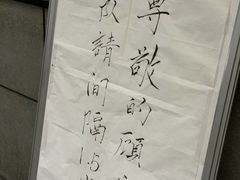 尊敬的顧
請间隔1.5